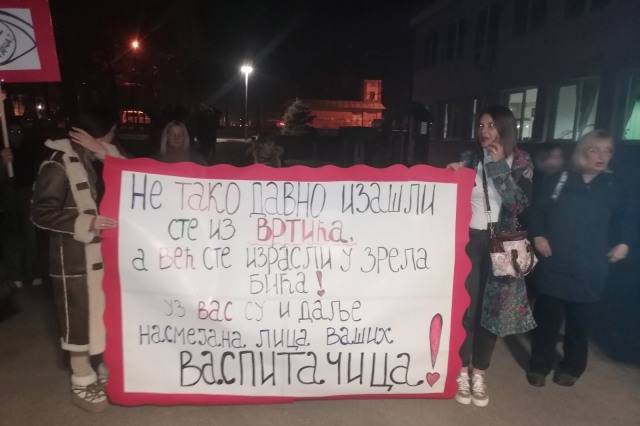 Не тако давно изашли
сте из вртића,
а већ сте израсли у зрела
бића!
уз вас су и даље
насмејана лица ваших
васпитачица!